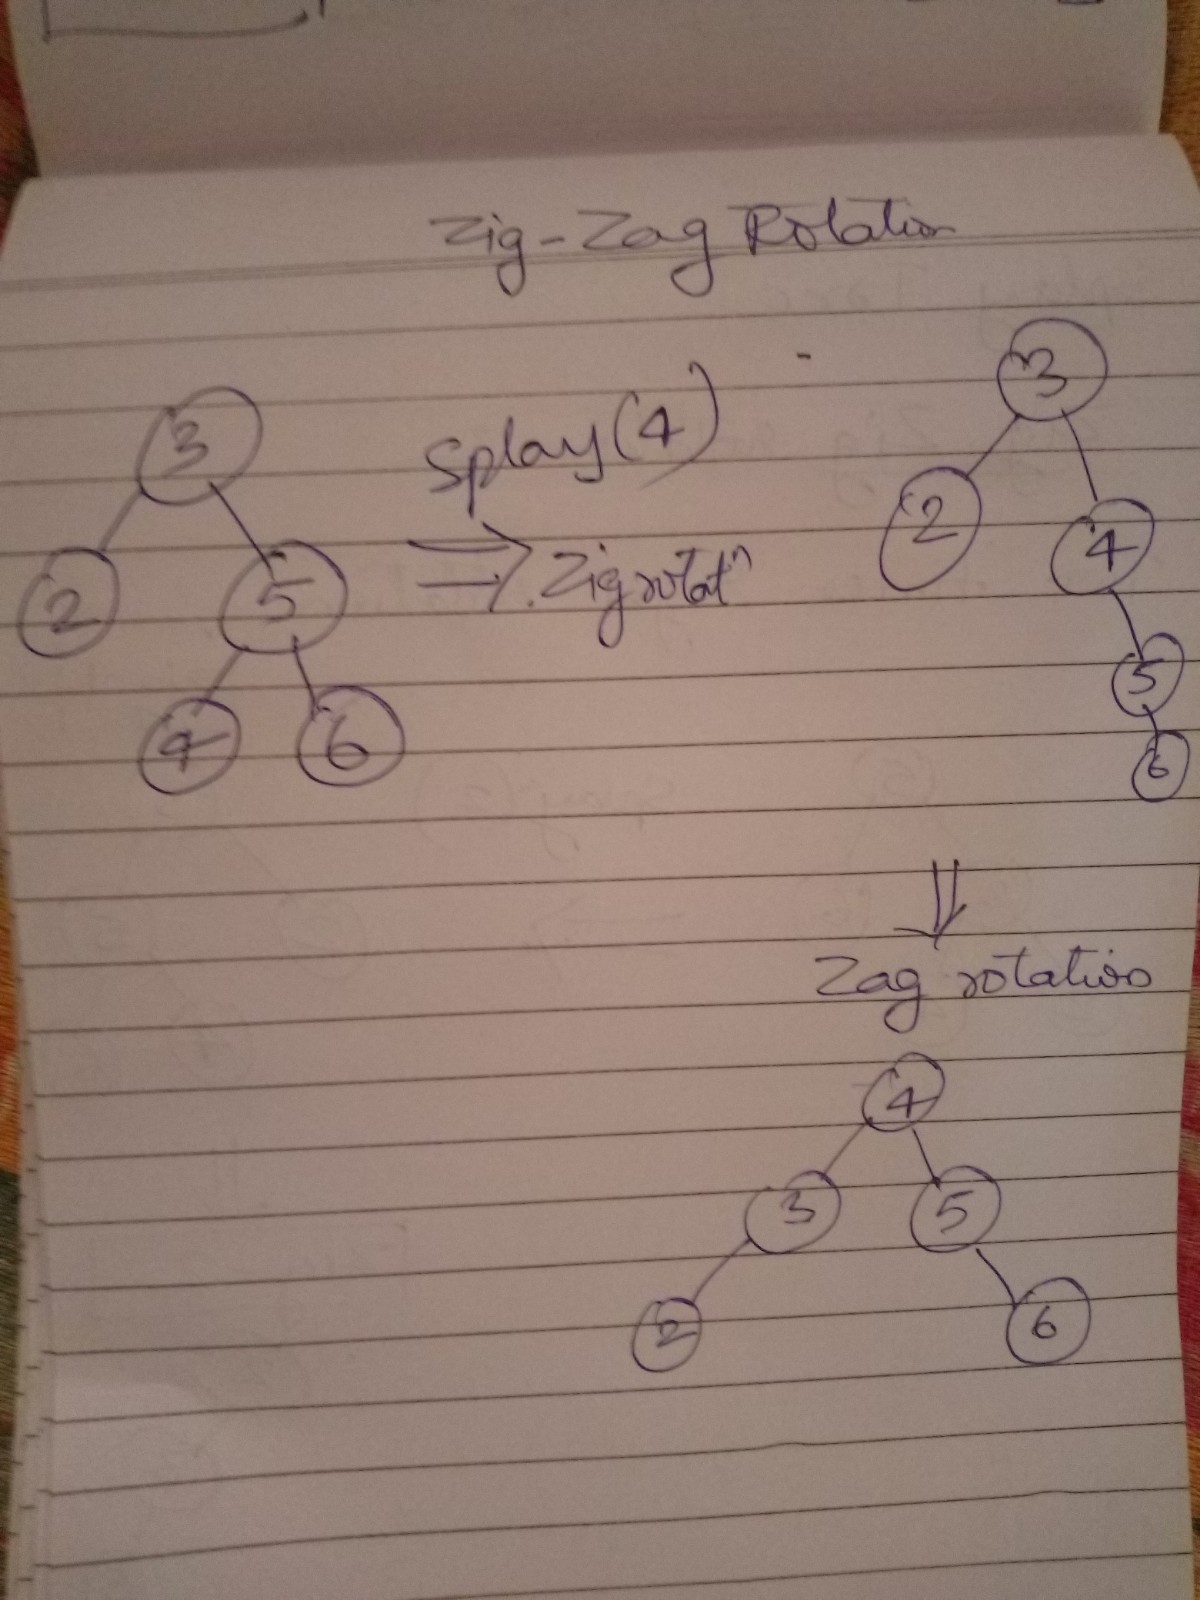 Zig-Zag Rotation
3
2 5
4 6
Splay(4)
Zig rotatⁿ
3
2 4
5
6
Zag rotation
4
3 5
2 6